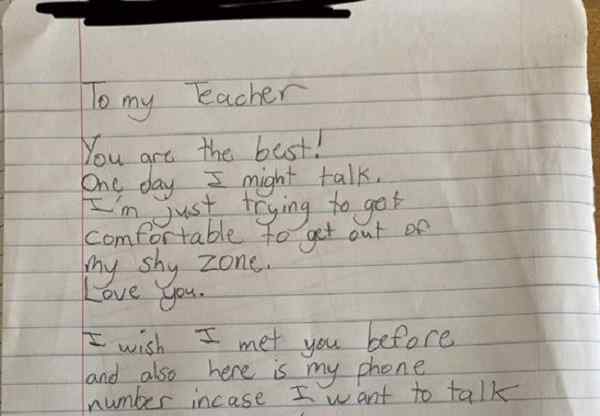 To my Teacher
You are the best!
One day I might talk.
I'm just trying to get
comfortable to get out of
my shy zone.
Love you.
I wish I met you before
and also here is my phone
number incase I want to talk